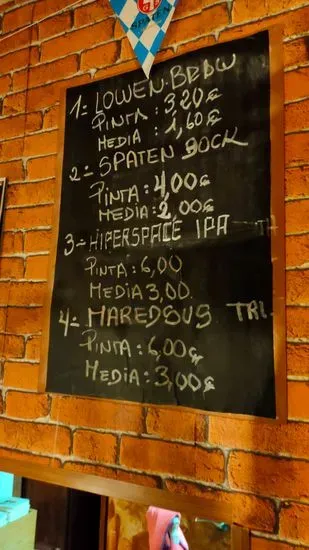 1- LOWEN.BRAW
PINTA : 3,20€
MEDIA : 1,60€
2- SPATEN BOCK
PINTA: 4,00€
MEDIA: 2,00€
3- HIPERSPACE IPA
PINTA: 6,00
MEDIA 3,00.
4- MAREDSUS TRI.
PINTA: 6,00€
MEDIA: 3,00€